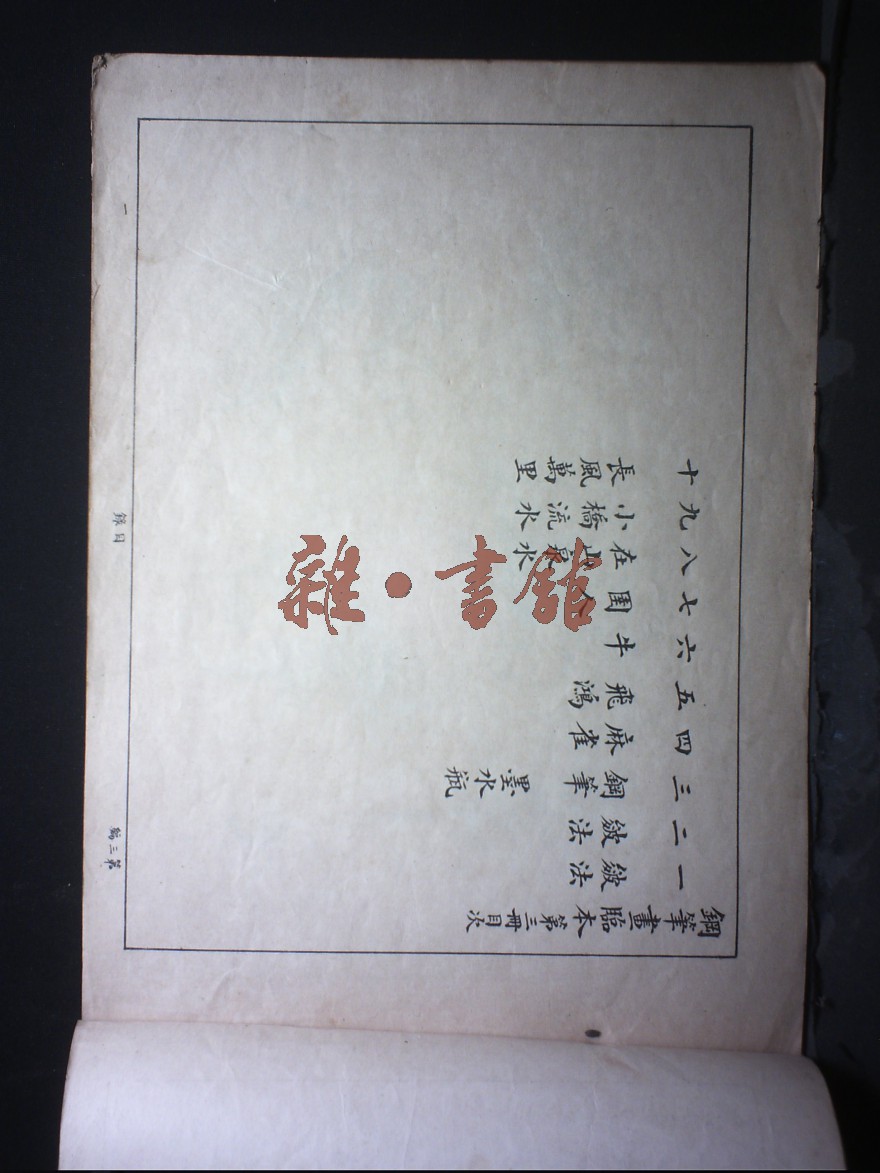 鋼筆畫臨本第三冊目次
一 皴法
二 皴法
三 鋼筆 墨水瓶
四 麻雀
五 飛鴻
六 牛
七 圉人
八 在山泉水
九 小橋流水
十 長風萬里
第三編 目錄 一
雜·書館